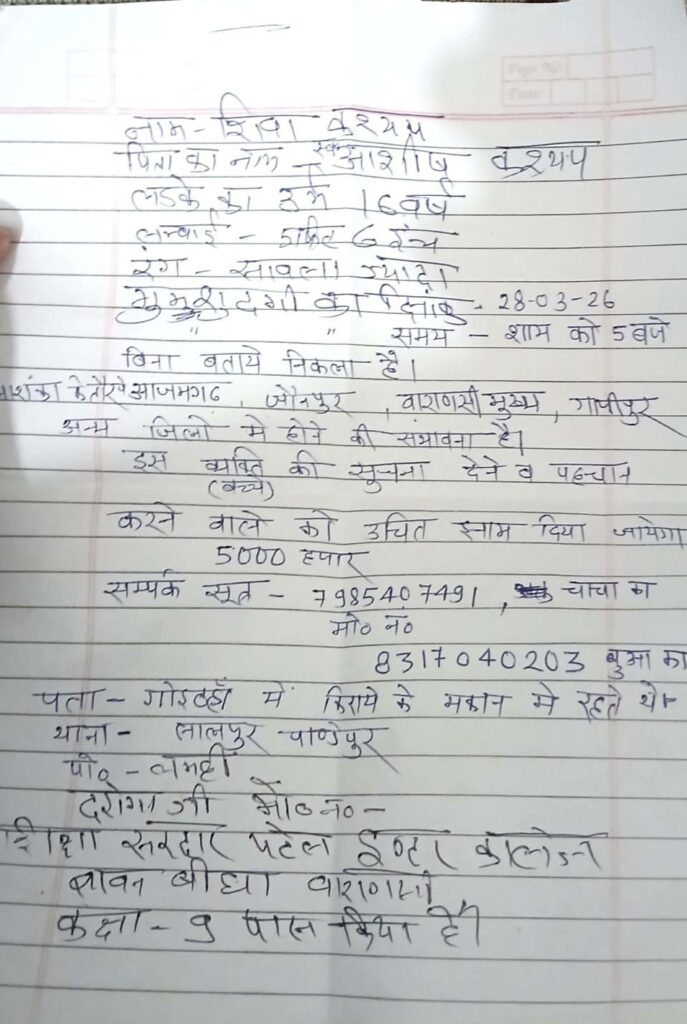 नाम - शिवा कश्यप
पिता का नाम - स्व० आशीष कश्यप
लडके का उर्म 16 वर्ष
लम्बाई - 5 फिट 6 इंच
रंग - सावला ज्यादा
गुमशुदगी का दिनांक - 28-03-26
" " समय - शाम को 5 बजे
बिना बताये निकला है।
आशंका के तौर पे आजमगढ, जौनपुर, वाराणसी मुख्य, गाजीपुर
अन्य जिलो मे होने की संभावना है।
इस व्यक्ति की सुचना देने व पहचान
(बच्चे)
करने वाले को उचित इनाम दिया जायेगा
5000 हपार
सम्पर्क सूत्र - 7985407491, चाचा का
मो० नं०
8317040203 बुआ का
पता - गोइठहाँ में किराये के मकान मे रहते थे।
थाना - लालपुर पाण्डेपुर
पो० - लमही
दरोगा जी मो० न० -
शिक्षा सरदार पटेल इण्टर कालेज
बावन बीघा वाराणसी
कक्षा - 9 पास किया है।